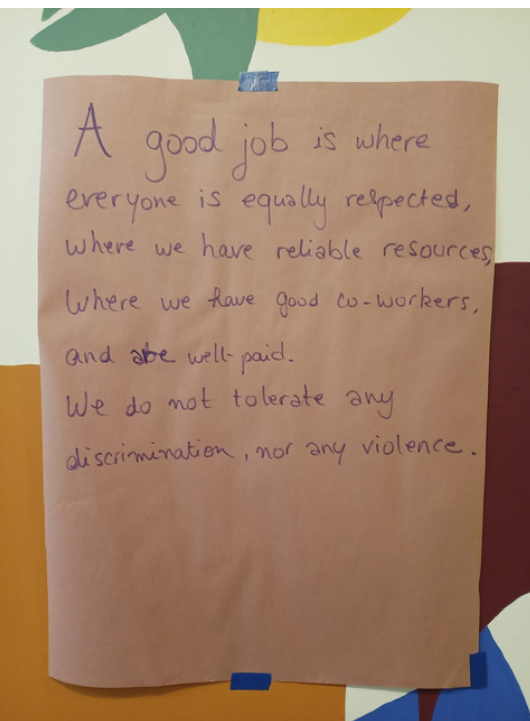 A good job is where
everyone is equally respected,
where we have reliable resources,
Where we have good co-workers,
and are well-paid.
We do not tolerate any
discrimination, nor any violence.